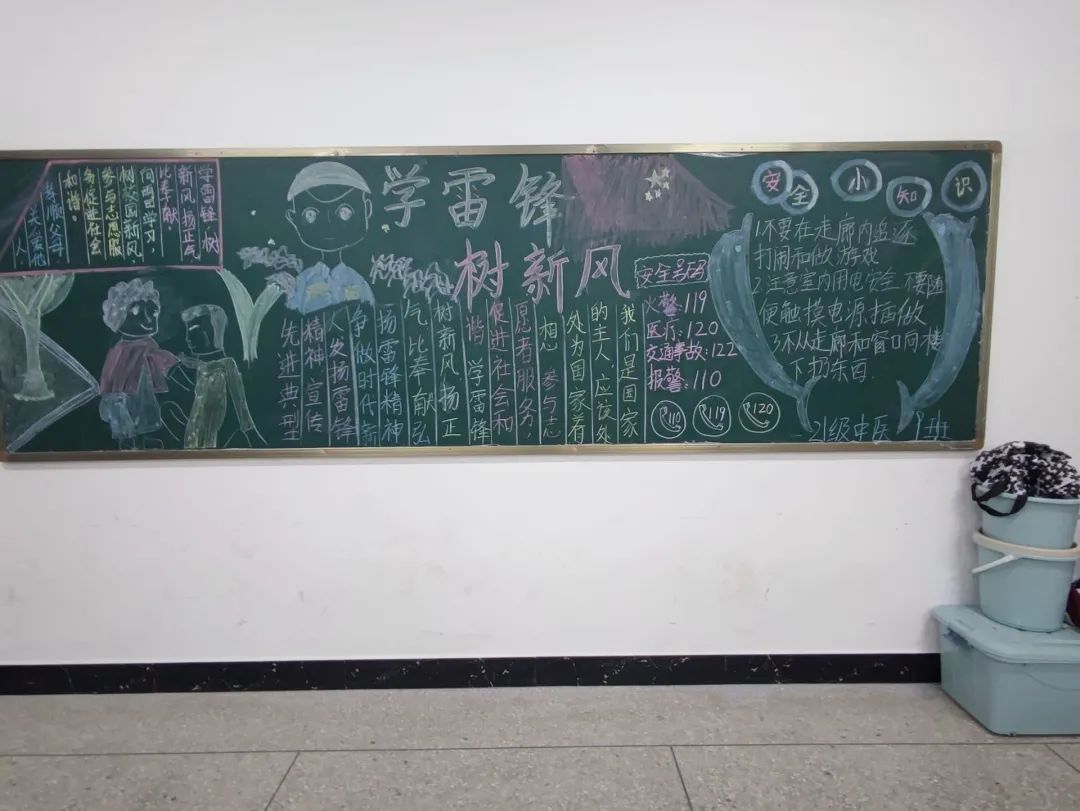 学雷锋,树
新风扬正气
比奉献.
树校园新风
参与志愿服
务促进社会
和谐。
孝顺父母
关爱他
人
学雷锋
树新风
我们是国家
的主人,应该处
处为国家着
想 参与志
愿者服务,
促进社会和
谐 学雷锋
树新风扬正
气比奉献弘
扬雷锋精神
争做时代新
人发扬雷锋
精神宣传
先进典型
安全号码
火警:119
医疗:120
交通事故:122
报警:110
110 119 120
安全小知识
1不要在走廊内追逐
打闹和做游戏
2.注意室内用电安全 不要随
便触摸电源插做
3不从走廊和窗口向楼
下扔东西.
21级中医 班